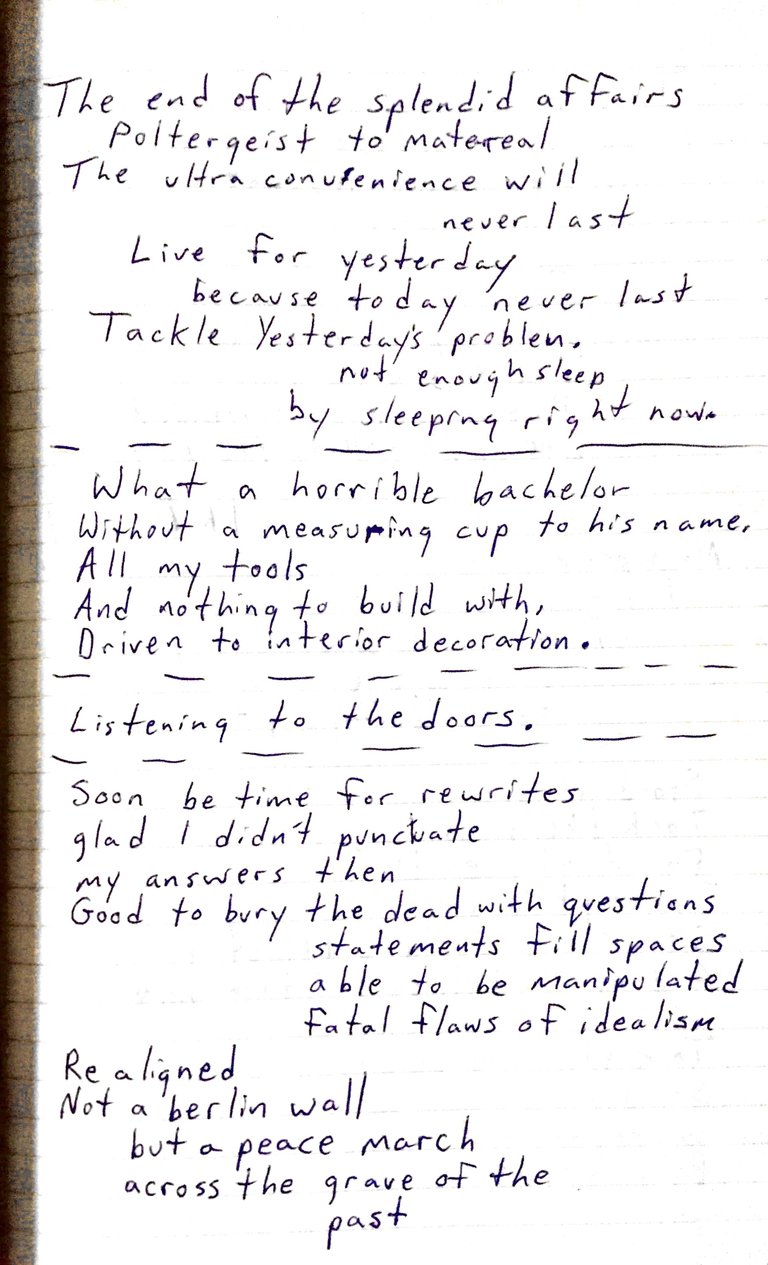 The end of the splendid affairs
Poltergeist to matereal
The ultra convienience will
never last
Live for yesterday
because today never last
Tackle Yesterday's problem.
not enough sleep
by sleeping right now.
What a horrible bachelor
Without a measuring cup to his name,
All my tools
And nothing to build with,
Driven to interior decoration.
Listening to the doors.
Soon be time for rewrites
glad I didn't punctuate
my answers then
Good to bury the dead with questions
statements fill spaces
able to be manipulated
fatal flaws of idealism
Realigned
Not a berlin wall
but a peace march
across the grave of the
past